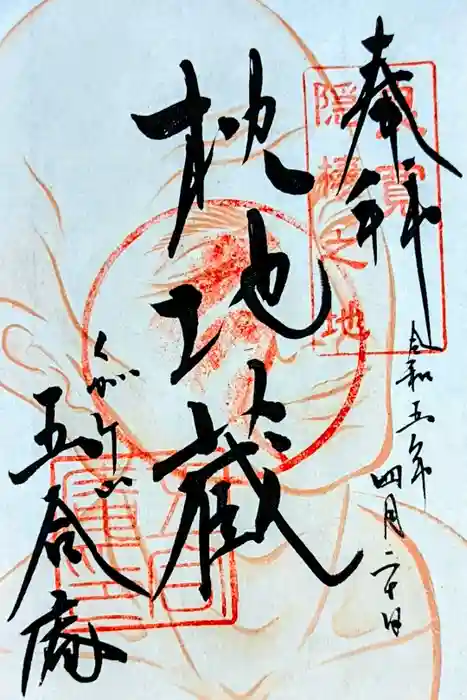 奉拝
良寛
隠棲之地
令和五年四月二十日
枕地蔵
くがみ山
五合庵